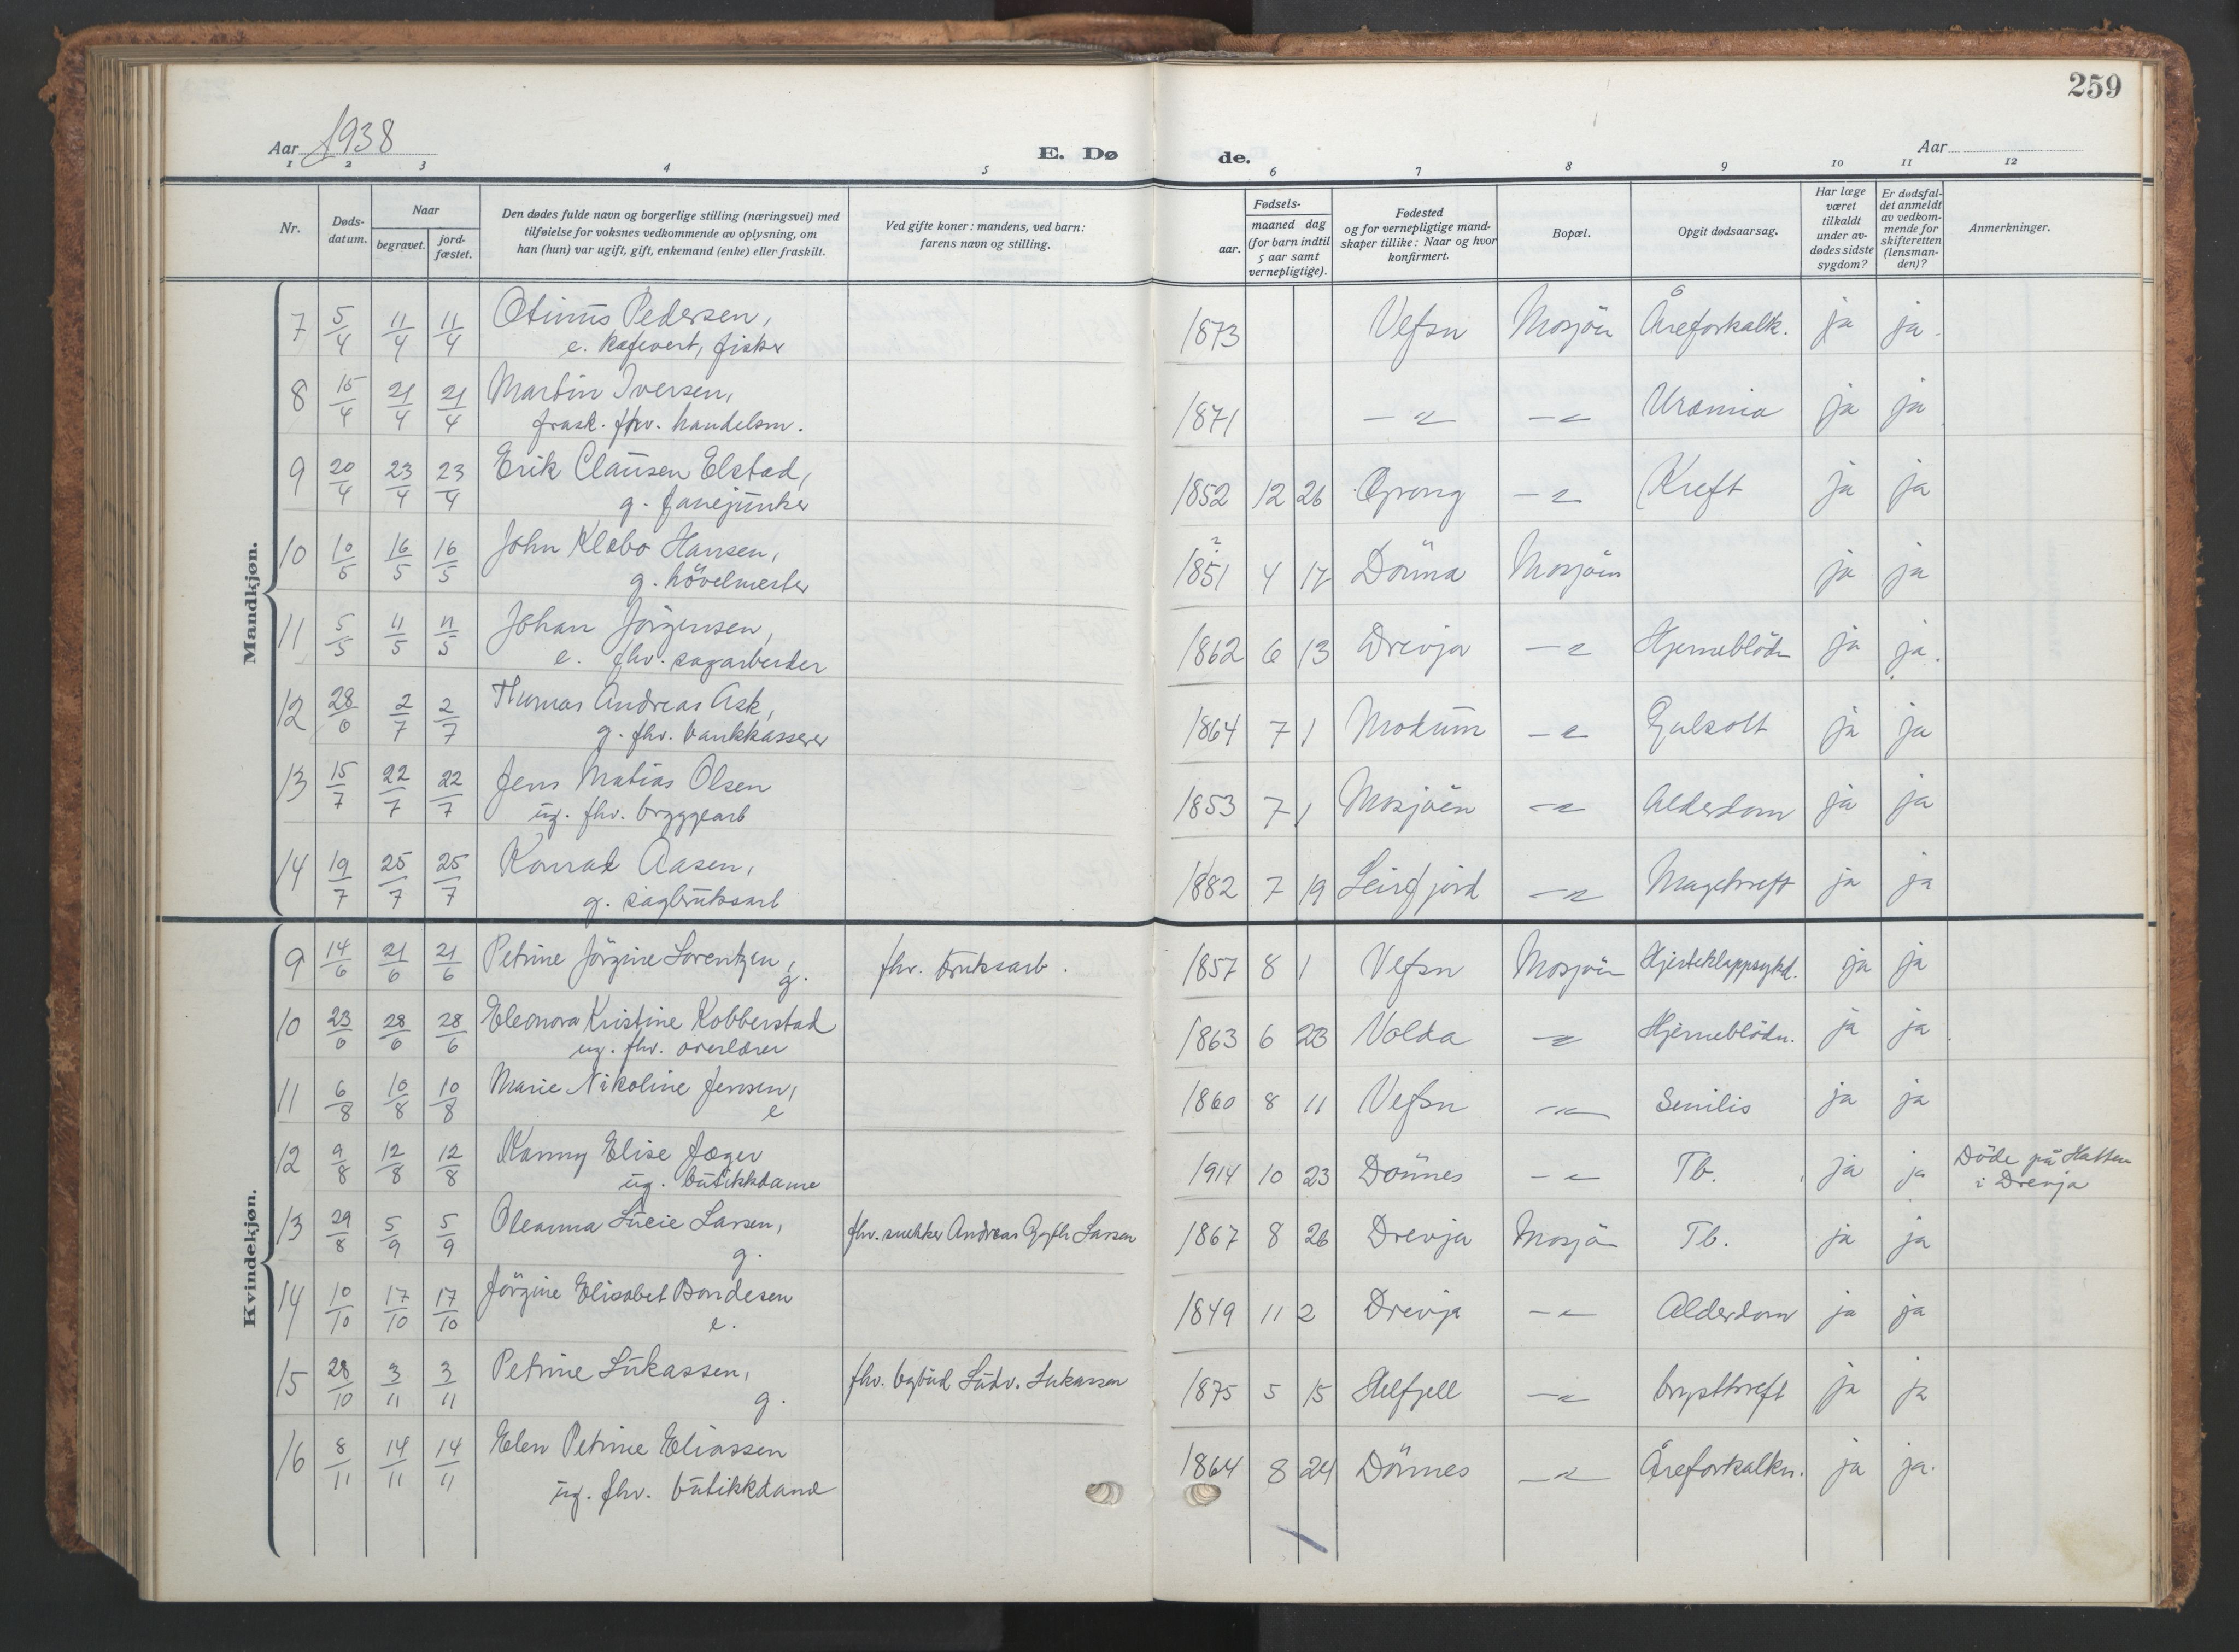 259
Aar 1938
E. Dø
de.
Aar
1 2 3 4 5 6 7 8 9 10 11 12
Nr.
Døds-datum.
Naar
begravet.
jord-fæstet.
Den dødes fulde navn og borgerlige stilling (næringsvei) med
tilføielse for voksnes vedkommende av oplysning, om
han (hun) var ugift, gift, enkemand (enke) eller fraskilt.
Ved gifte koner: mandens, ved barn:
farens navn og stilling.
Fødsels-
aar.
maaned dag
(for barn indtil
5 aar samt
vernepligtige).
Fødested
og for vernepligtige mand-
skaper tillike: Naar og hvor
konfirmert.
Bopæl.
Opgit dødsaarsag.
Har læge
været
tilkaldt
under av-
dødes sidste
sygdom?
Er dødsfal-
det anmeldt
av vedkom-
mende for
skifteretten
(lensman-
den)?
Anmerkninger.
Mandkjøn.
7 5/4 11/4 11/4 Otinus Pedersen, 1873 Vefsn Mosjöen Åreforkalk. ja ja.
e. kafevert, fisker
8 15/4 21/4 21/4 Martin Iversen, 1871 -"- -"- Uræmia ja ja
frask. fhv. handelsm.
9 20/4 23/4 23/4 Erik Clausen Elstad, 1852 12 26 Grong -"- Kreft ja ja
g. fanejunker
10 10/5 16/5 16/5 John Klæbo Hansen, 1851 ? 4 17 Dönna Mosjöen ja ja
g. hövelmester
11 5/5 11/5 11/5 Johan Jörgensen, 1862 6 13 Drevja -"- Hjerneblödn ja ja.
e. fhv. sagarbeider
12 28/6 2/7 2/7 Thomas Andreas Ask, 1864 7 1 Modum -"- Gulsott ja ja
g. fhv. bankkasserer
13 15/7 22/7 22/7 Jens Matias Olsen 1853 7 1 Mosjöen -"- Alderdom ja ja
ug. fhv. bryggearb
14 19/7 25/7 25/7 Konrad Aasen, 1882 7 19 Leirfjord -"- Magekreft ja ja
g. sagbruksarb
Kvindekjøn.
9 14/6 21/6 21/6 Petrine Jörgine Lorentzen, g. fhv. bruksarb. 1857 8 1 Vefsn Mosjöen Hjerteklappsykd. ja ja
10 23/6 28/6 28/6 Eleonora Kristine Kobberstad 1863 6 23 Volda -"- Hjerneblödn. ja ja
ug. fhv. overlærer
11 6/8 10/8 10/8 Marie Nikoline Jensen, 1860 8 11 Vefsn -"- Senilis ja ja
e
12 9/8 12/8 12/8 Nanny Elise Jæger 1914 10 23 Dönnes -"- Tb. ja ja Döde på Hatten
ug. butikkdame i Drevja
13 29/8 5/9 5/9 Oleanna Lucie Larsen, g. fhv. snekker Andreas Larsen 1867 8 26 Drevja Mosjö Tb. ja ja
14 10/10 17/10 17/10 Jörgine Elisabet Bondesen 1849 11 2 Drevja -"- Alderdom ja ja
e.
15 28/10 3/11 3/11 Petrine Lukassen, g. fhv. bybud Ludv. Lukassen 1875 5 15 Helfjell -"- brystkreft ja ja
16 8/11 14/11 14/11 Elen Petrine Eliassen 1864 8 24 Dönnes -"- Åreforkalkn. ja ja.
ug. fhv. butikkdame